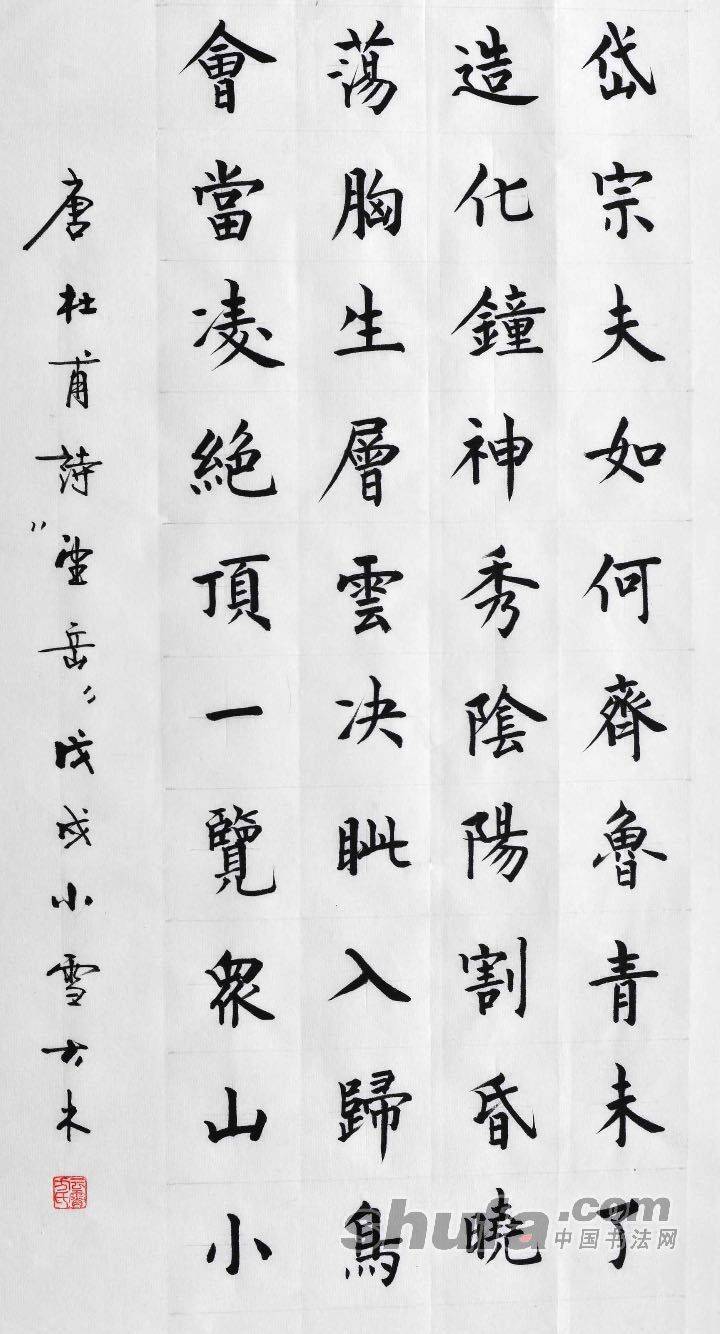 岱宗夫如何齊魯青未了
造化鐘神秀陰陽割昏曉
蕩胸生層雲决眦入歸鳥
會當凌絕頂一覽眾山小
唐杜甫詩"望岳"戊戌小雪方木
shufa.com
中国书法网